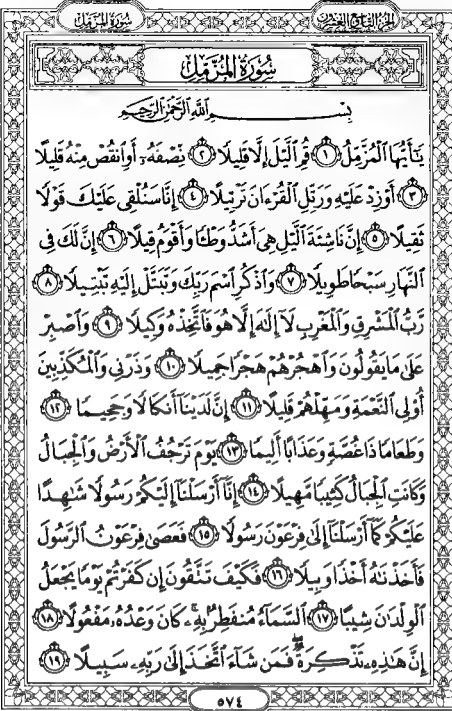 سُورَةُ المُزَّمِّل
الجُزءُ التَّاسِعُ وَالعِشرُونَ
سُورَةُ المُزَّمِّلِ
بِسْمِ ٱللَّهِ ٱلرَّحْمَٰنِ ٱلرَّحِيمِ
يَٰٓأَيُّهَا ٱلْمُزَّمِّلُ ١ قُمِ ٱلَّيْلَ إِلَّا قَلِيلًا ٢ نِّصْفَهُۥٓ أَوِ ٱنقُصْ مِنْهُ قَلِيلًا
٣ أَوْ زِدْ عَلَيْهِ وَرَتِّلِ ٱلْقُرْءَانَ تَرْتِيلًا ٤ إِنَّا سَنُلْقِى عَلَيْكَ قَوْلًا
ثَقِيلًا ٥ إِنَّ نَاشِئَةَ ٱلَّيْلِ هِىَ أَشَدُّ وَطْـًٔا وَأَقْوَمُ قِيلًا ٦ إِنَّ لَكَ فِى
ٱلنَّهَارِ سَبْحًا طَوِيلًا ٧ وَٱذْكُرِ ٱسْمَ رَبِّكَ وَتَبَتَّلْ إِلَيْهِ تَبْتِيلًا ٨
رَّبُّ ٱلْمَشْرِقِ وَٱلْمَغْرِبِ لَآ إِلَٰهَ إِلَّا هُوَ فَٱتَّخِذْهُ وَكِيلًا ٩ وَٱصْبِرْ
عَلَىٰ مَا يَقُولُونَ وَٱهْجُرْهُمْ هَجْرًا جَمِيلًا ١٠ وَذَرْنِى وَٱلْمُكَذِّبِينَ
أُو۟لِى ٱلنَّعْمَةِ وَمَهِّلْهُمْ قَلِيلًا ١١ إِنَّ لَدَيْنَآ أَنكَالًا وَجَحِيمًا ١٢
وَطَعَامًا ذَا غُصَّةٍ وَعَذَابًا أَلِيمًا ١٣ يَوْمَ تَرْجُفُ ٱلْأَرْضُ وَٱلْجِبَالُ
وَكَانَتِ ٱلْجِبَالُ كَثِيبًا مَّهِيلًا ١٤ إِنَّآ أَرْسَلْنَآ إِلَيْكُمْ رَسُولًا شَٰهِدًا
عَلَيْكُمْ كَمَآ أَرْسَلْنَآ إِلَىٰ فِرْعَوْنَ رَسُولًا ١٥ فَعَصَىٰ فِرْعَوْنُ ٱلرَّسُولَ
فَأَخَذْنَٰهُ أَخْذًا وَبِيلًا ١٦ فَكَيْفَ تَتَّقُونَ إِن كَفَرْتُمْ يَوْمًا يَجْعَلُ
ٱلْوِلْدَٰنَ شِيبًا ١٧ ٱلسَّمَآءُ مُنفَطِرٌۢ بِهِۦ ۚ كَانَ وَعْدُهُۥ مَفْعُولًا ١٨
إِنَّ هَٰذِهِۦ تَذْكِرَةٌ ۖ فَمَن شَآءَ ٱتَّخَذَ إِلَىٰ رَبِّهِۦ سَبِيلًا ١٩
٥٧٤